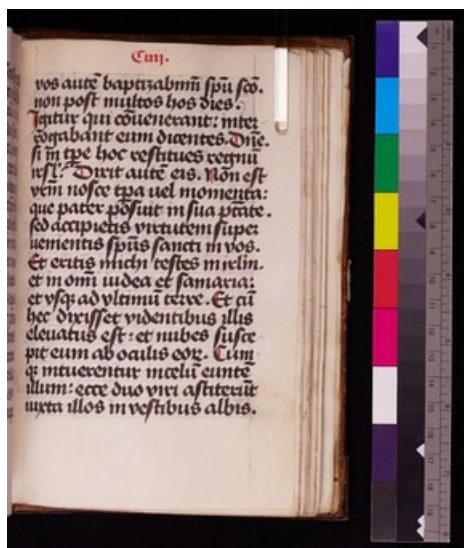 Ciiij.
vos autē baptizabimī spū scō.
non post multos hos dies.
Igitur qui cōuenerant: inter
rogabant eum dicentes. Dn̄e.
si in tp̄e hoc restitues regnū
isrl̄? Dixit autē eis. Non est
vr̄m nosce tp̄a uel momenta:
que pater posuit in sua ptāte.
sed accipietis virtutem super
uenientis spūs sancti in vos.
Et eritis michi testes in irlm̄.
et in omī iudea et samaria:
et vsq; ad vltimū terre. Et cū
hec dixisset videntibus illis
eleuatus est: et nubes susce
pit eum ab oculis eoꝝ. Cum
q; intuerentur in celū euntē
illum: ecce duo viri astiterūt
iuxta illos in vestibus albis.